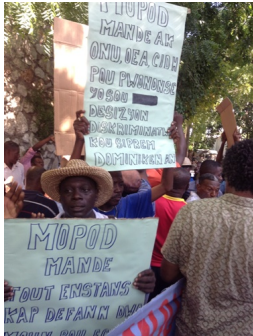 MOPOD
MANDE AK
ONU, OEA CIDH
POU PWONONSE
YO SOU
DESIZYON
DISKRIMINATWA
KOU SIPREM
DOMINIKEN AN
MOPOD
MANDE
TOUT ENSTANS
KAP DEFANN DWA
MOUN POU